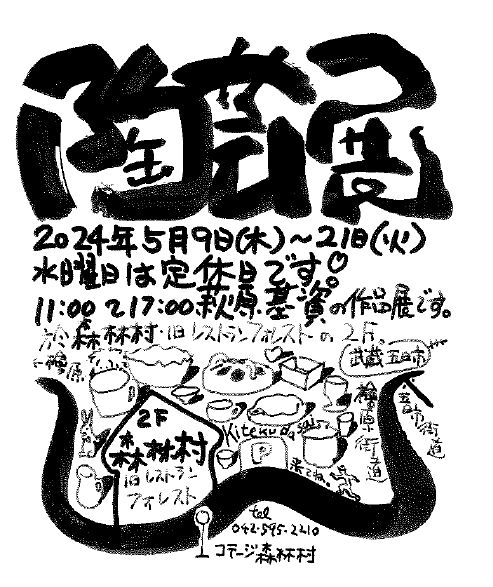 陶芸展
2024年5月9日(木)～21日(火)
水曜日は定休日です。
11:00〜17:00 萩原基演の作品展です。
於 森林村・旧レストランフォレストの2F
武蔵五日市
檜原
檜原街道
2F
森林村
旧レストラン
フォレスト
Kitekudasai
P
来てね。
tel
042-595-2210
コテージ森林村